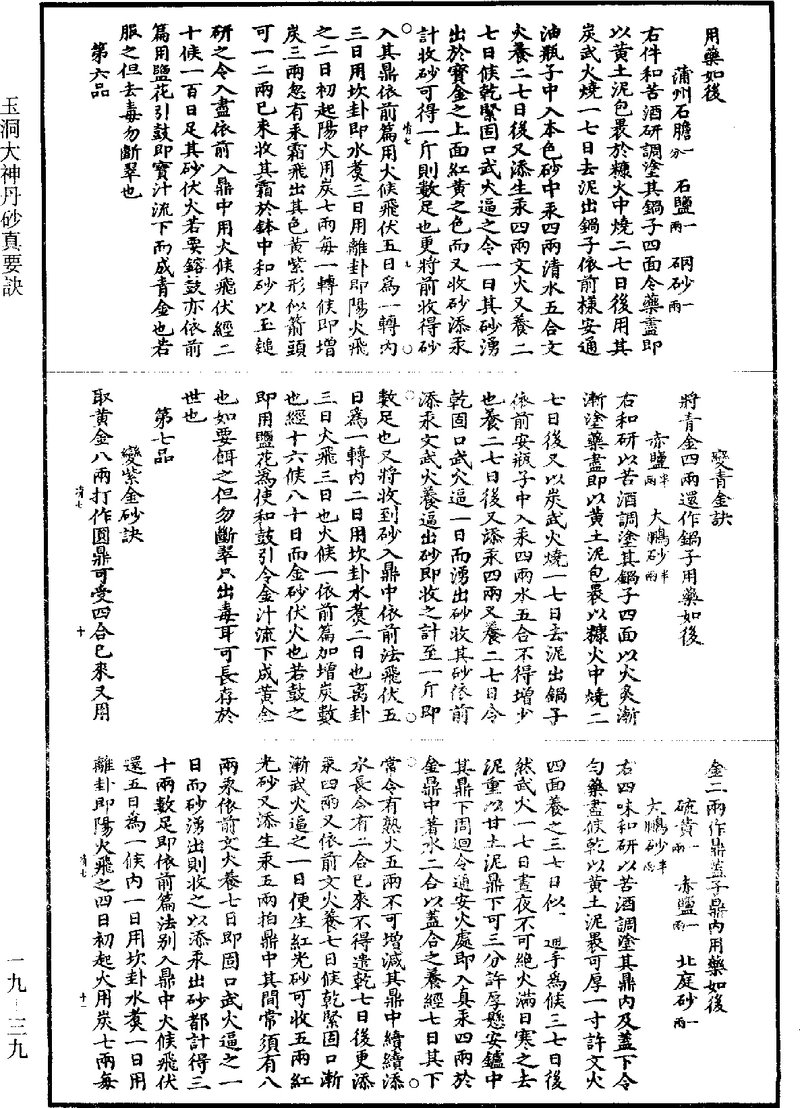 用藥如後
蒲州石膽一分 石鹽一兩 硇砂一兩
右件和苦酒研調塗其鍋子四面令藥盡即
以黃土泥包裹於糠火中燒二七日後用其
炭武火燒一七日去泥出鍋子依前樣安通
油瓶子中入本色砂中汞四兩清水五合文
火養二七日後又添生汞四兩文火又養二
七日候乾緊固口武火逼之令一日其砂湧
出於寶金之上面紅黃之色而又收砂添汞
計收砂可得一斤則數足也更將前收得砂
情七 九
入其鼎依前篇用火候飛伏五日爲一轉內
三日用坎卦即水煑三日用離卦即陽火飛
之二日初起陽火用炭七兩每一轉候即增
炭三兩忽有汞霜飛出其色黃紫形似箭頭
可一二兩已來收其霜於鉢中和砂以玉鎚
研之令入盡依前入鼎中用火候飛伏經二
十候一百日足其砂伏火若要鎔鼓亦依前
篇用鹽花引鼓即寶汁流下而成青金也若
服之但去毒勿斷翠也
第六品
變青金訣
將青金四兩還作鍋子用藥如後
赤鹽半兩 大鵬砂半兩
右和研以苦酒調塗其鍋子四面以火炙漸
漸塗藥盡即以黃土泥包裹以糠火中燒二
七日後又以炭武火燒一七日去泥出鍋子
依前安瓶子中入汞四兩水五合不得增少
也養二七日後又添汞四兩又養二七日令
乾固口武火逼一日而湧出砂收其砂依前
添汞文武火養逼出砂即收之計至一斤即
數足也又將收到砂入鼎中依前法飛伏五
日爲一轉內二日用坎卦水煑二日也离卦
三日火飛三日也火候一依前篇加增炭數
也經十六候八十日而金砂伏火也若鼓之
即用鹽花爲使和鼓引令金汁流下成黃金
也如要餌之但勿斷翠只出毒耳可長存於
世也
第七品
變紫金砂訣
取黃金八兩打作圓鼎可受四合已來又用
情七 十
金二兩作鼎蓋子鼎內用藥如後
硫黃一兩 赤鹽一兩 北庭砂一兩
大鵬砂半兩
右四味和研以苦酒調塗其鼎內及蓋下令
勻藥盡候乾以黃土泥裹可厚一寸許文火
四面養之三七日似、迴手爲候三七日後
然武火一七日晝夜不可絕火滿日寒之去
泥重以甘土泥鼎下可三分許厚懸安鑪中
其鼎下周迴令通安火處即入真汞四兩於
金鼎中著水二合以蓋合之養經七日其下
常令有熟火五兩不可增減其鼎中續續添
水長令有二合已來不得遣乾七日後更添
汞四兩又依前文火養七日候乾緊固口漸
漸武火逼之一日便生紅光砂可收五兩紅
光砂又添生汞五兩拍鼎中其間常須有八
兩汞依前文火養七日即固口武火逼之一
日而砂湧出則收之以添汞出砂都計得三
十兩數足即依前篇法別入鼎中火候飛伏
還五日爲一候內一日用坎卦水煑一日用
離卦即陽火飛之四日初起火用炭七兩每
情七 十一
玉洞大神丹砂真要訣
一九-三九